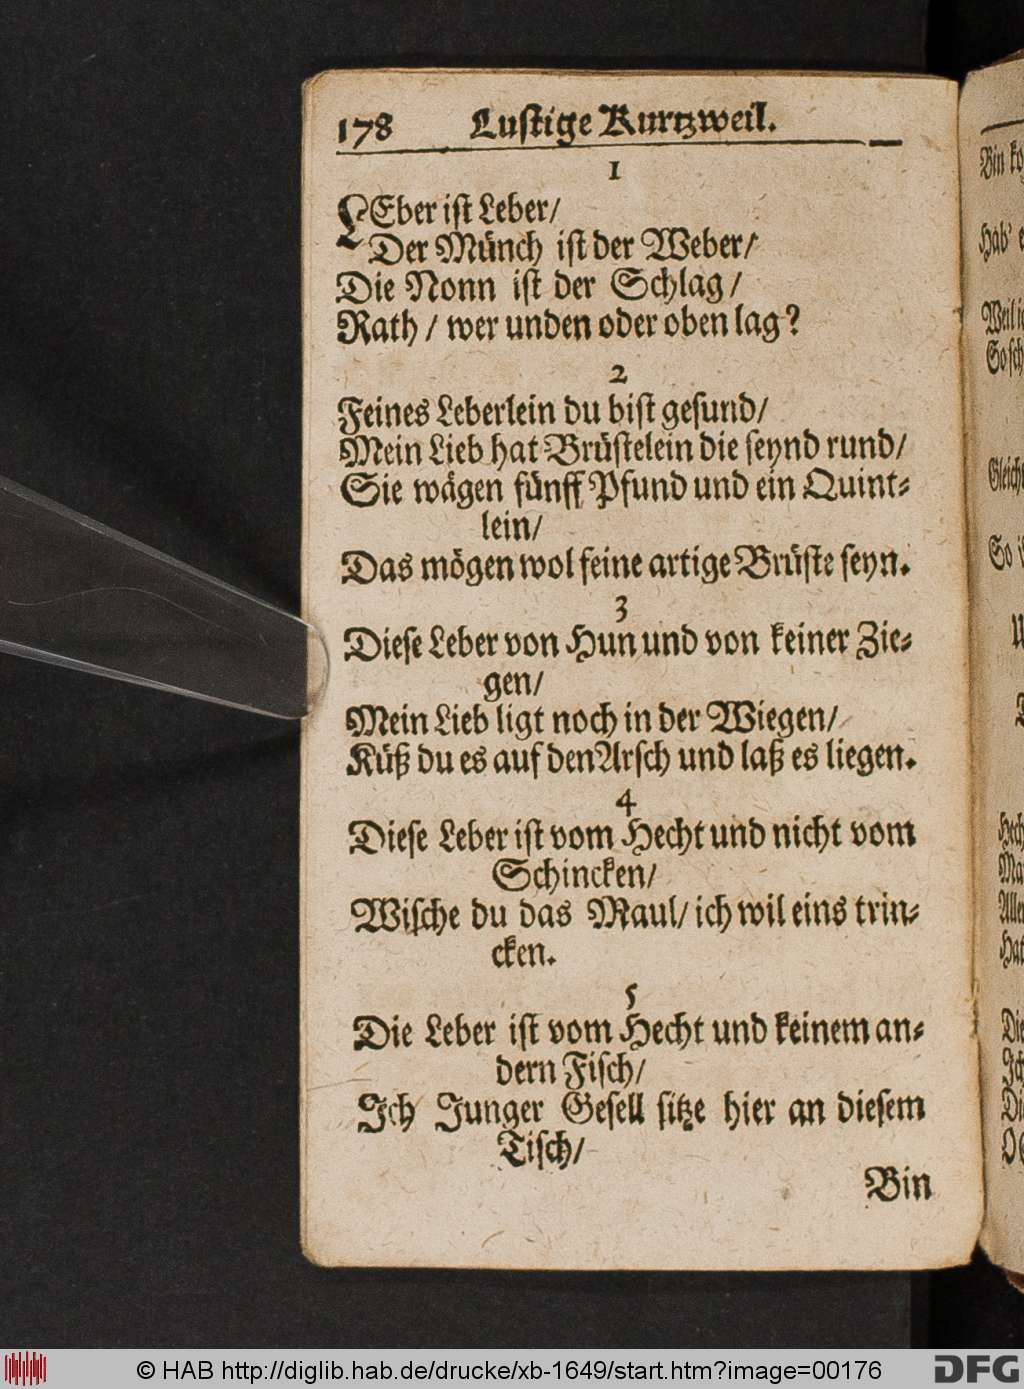 178 Lustige Kurtzweil.
1
LEber ist Leber/
Der Münch ist der Weber/
Die Nonn ist der Schlag/
Rath/ wer unden oder oben lag?
2
Feines Leberlein du bist gesund/
Mein Lieb hat Brüstelein die seynd rund/
Sie wägen fünff Pfund und ein Quint-
lein/
Das mögen wol feine artige Brüste seyn.
3
Diese Leber von Hun und von keiner Zie-
gen/
Mein Lieb ligt noch in der Wiegen/
Küß du es auf den Arsch und laß es liegen.
4
Diese Leber ist vom Hecht und nicht vom
Schincken/
Wische du das Maul/ ich wil eins trin-
cken.
5
Die Leber ist vom Hecht und keinem an-
dern Fisch/
Ich Junger Gesell sitze hier an diesem
Tisch/
Bin
Bin
Hab'
Weil
So
Gleich
So
Die
Ich
© HAB http://diglib.hab.de/drucke/xb-1649/start.htm?image=00176
DFG